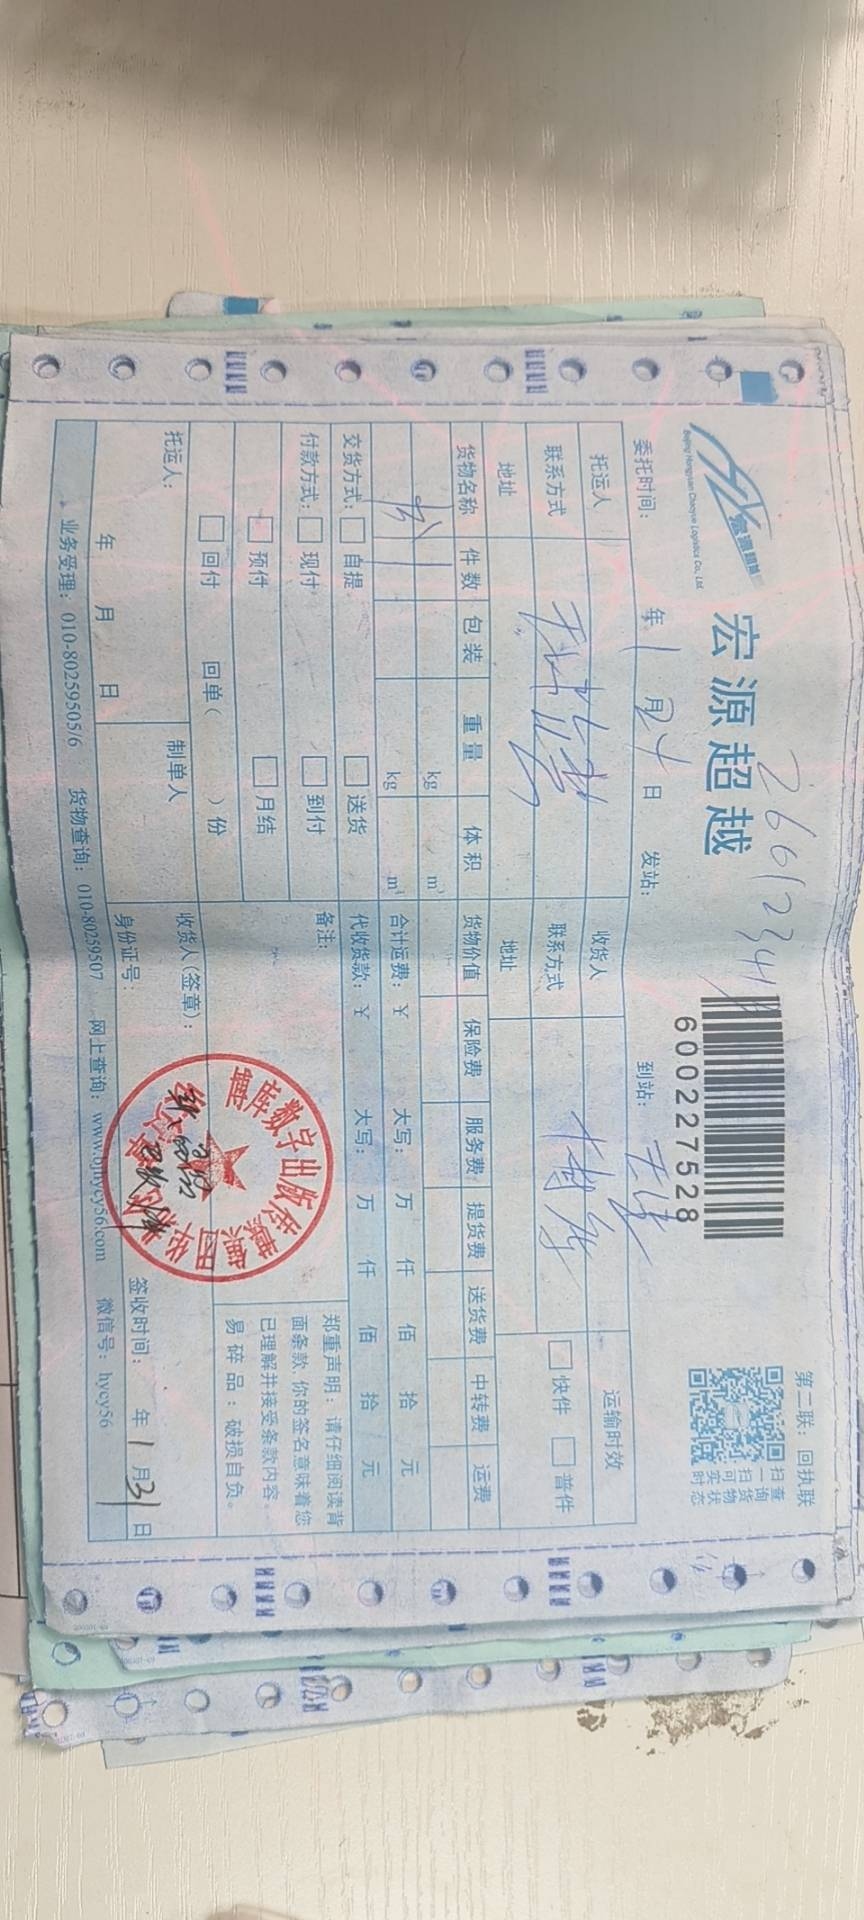 宏源超越
Beijing Hongyuan Chaoyue Logistics Co., Ltd.
宏源超越
2601234
600227528
第二联：回执联
扫查
一询
扫货
可物
实状
时态
委托时间： 年 1 月 24 日 发站： 到站： 天津
托运人 收货人 运输时效
联系方式 联系方式 快件 普件
地址 地址
货物名称 件数 包装 重量 体积 货物价值 保险费 服务费 提货费 送货费 中转费 运费
kg m³
书 1 kg m³ 合计运费：¥ 大写： 万 仟 佰 拾 元
交货方式： 自提 送货 代收货款：¥ 大写： 万 仟 佰 拾 元
付款方式： 现付 到付 备注：
预付 月结
回付 回单（ ）份
郑重声明：请仔细阅读背
面条款，你的签名意味着您
已理解并接受条款内容。
易碎品：破损自负。
博库数字出版传媒集团
托运人： 制单人 收货人（签章）：
年 月 日 身份证号： 签收时间： 年 1 月 31 日
业务受理：010-80259505/6 货物查询：010-80259507 网上查询：www.bjhycy56.com 微信号：hycy56